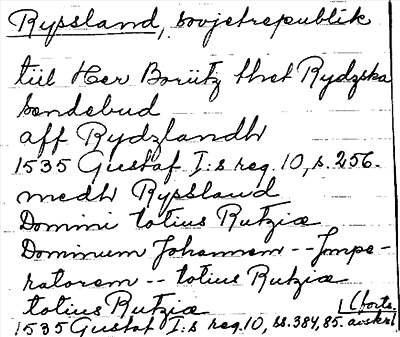 Ryssland, sovjetrepublik
till Her Boriitz thet Rydzska
sendebud
aff Rydzlandh
1535 Gustaf I:s reg. 10, s. 256.
medh Ryssland
Domini totius Rutziæ
Dominum Johannem -- Impe-
ratorem -- totius Rutziæ
totius Rutziæ
(forts.
1535 Gustaf I:s reg. 10, ss. 384, 85. avskr)